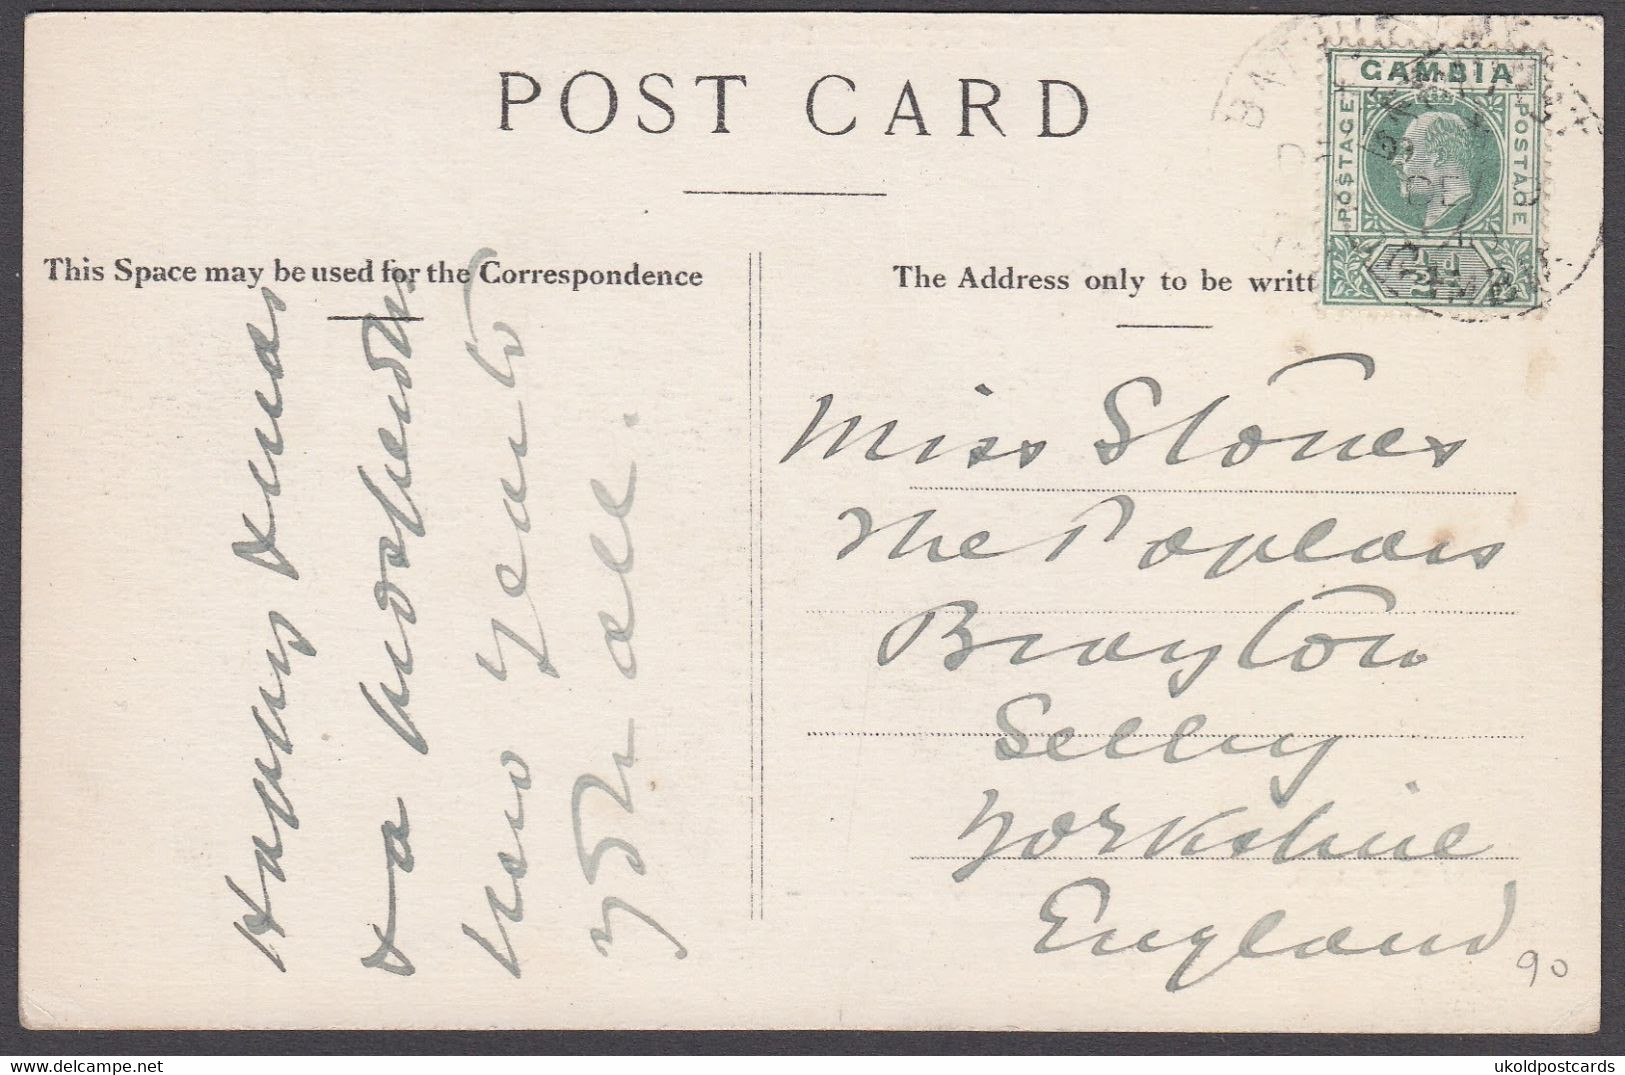 POST CARD
GAMBIA
POSTAGE
POSTAGE
This Space may be used for the Correspondence
The Address only to be writt
Happy Xmas
& a prosperous
New Year to
you all.
Miss Stones
The Poplars
Brayton
Selby
Yorkshire
England
90
ukoldpostcards